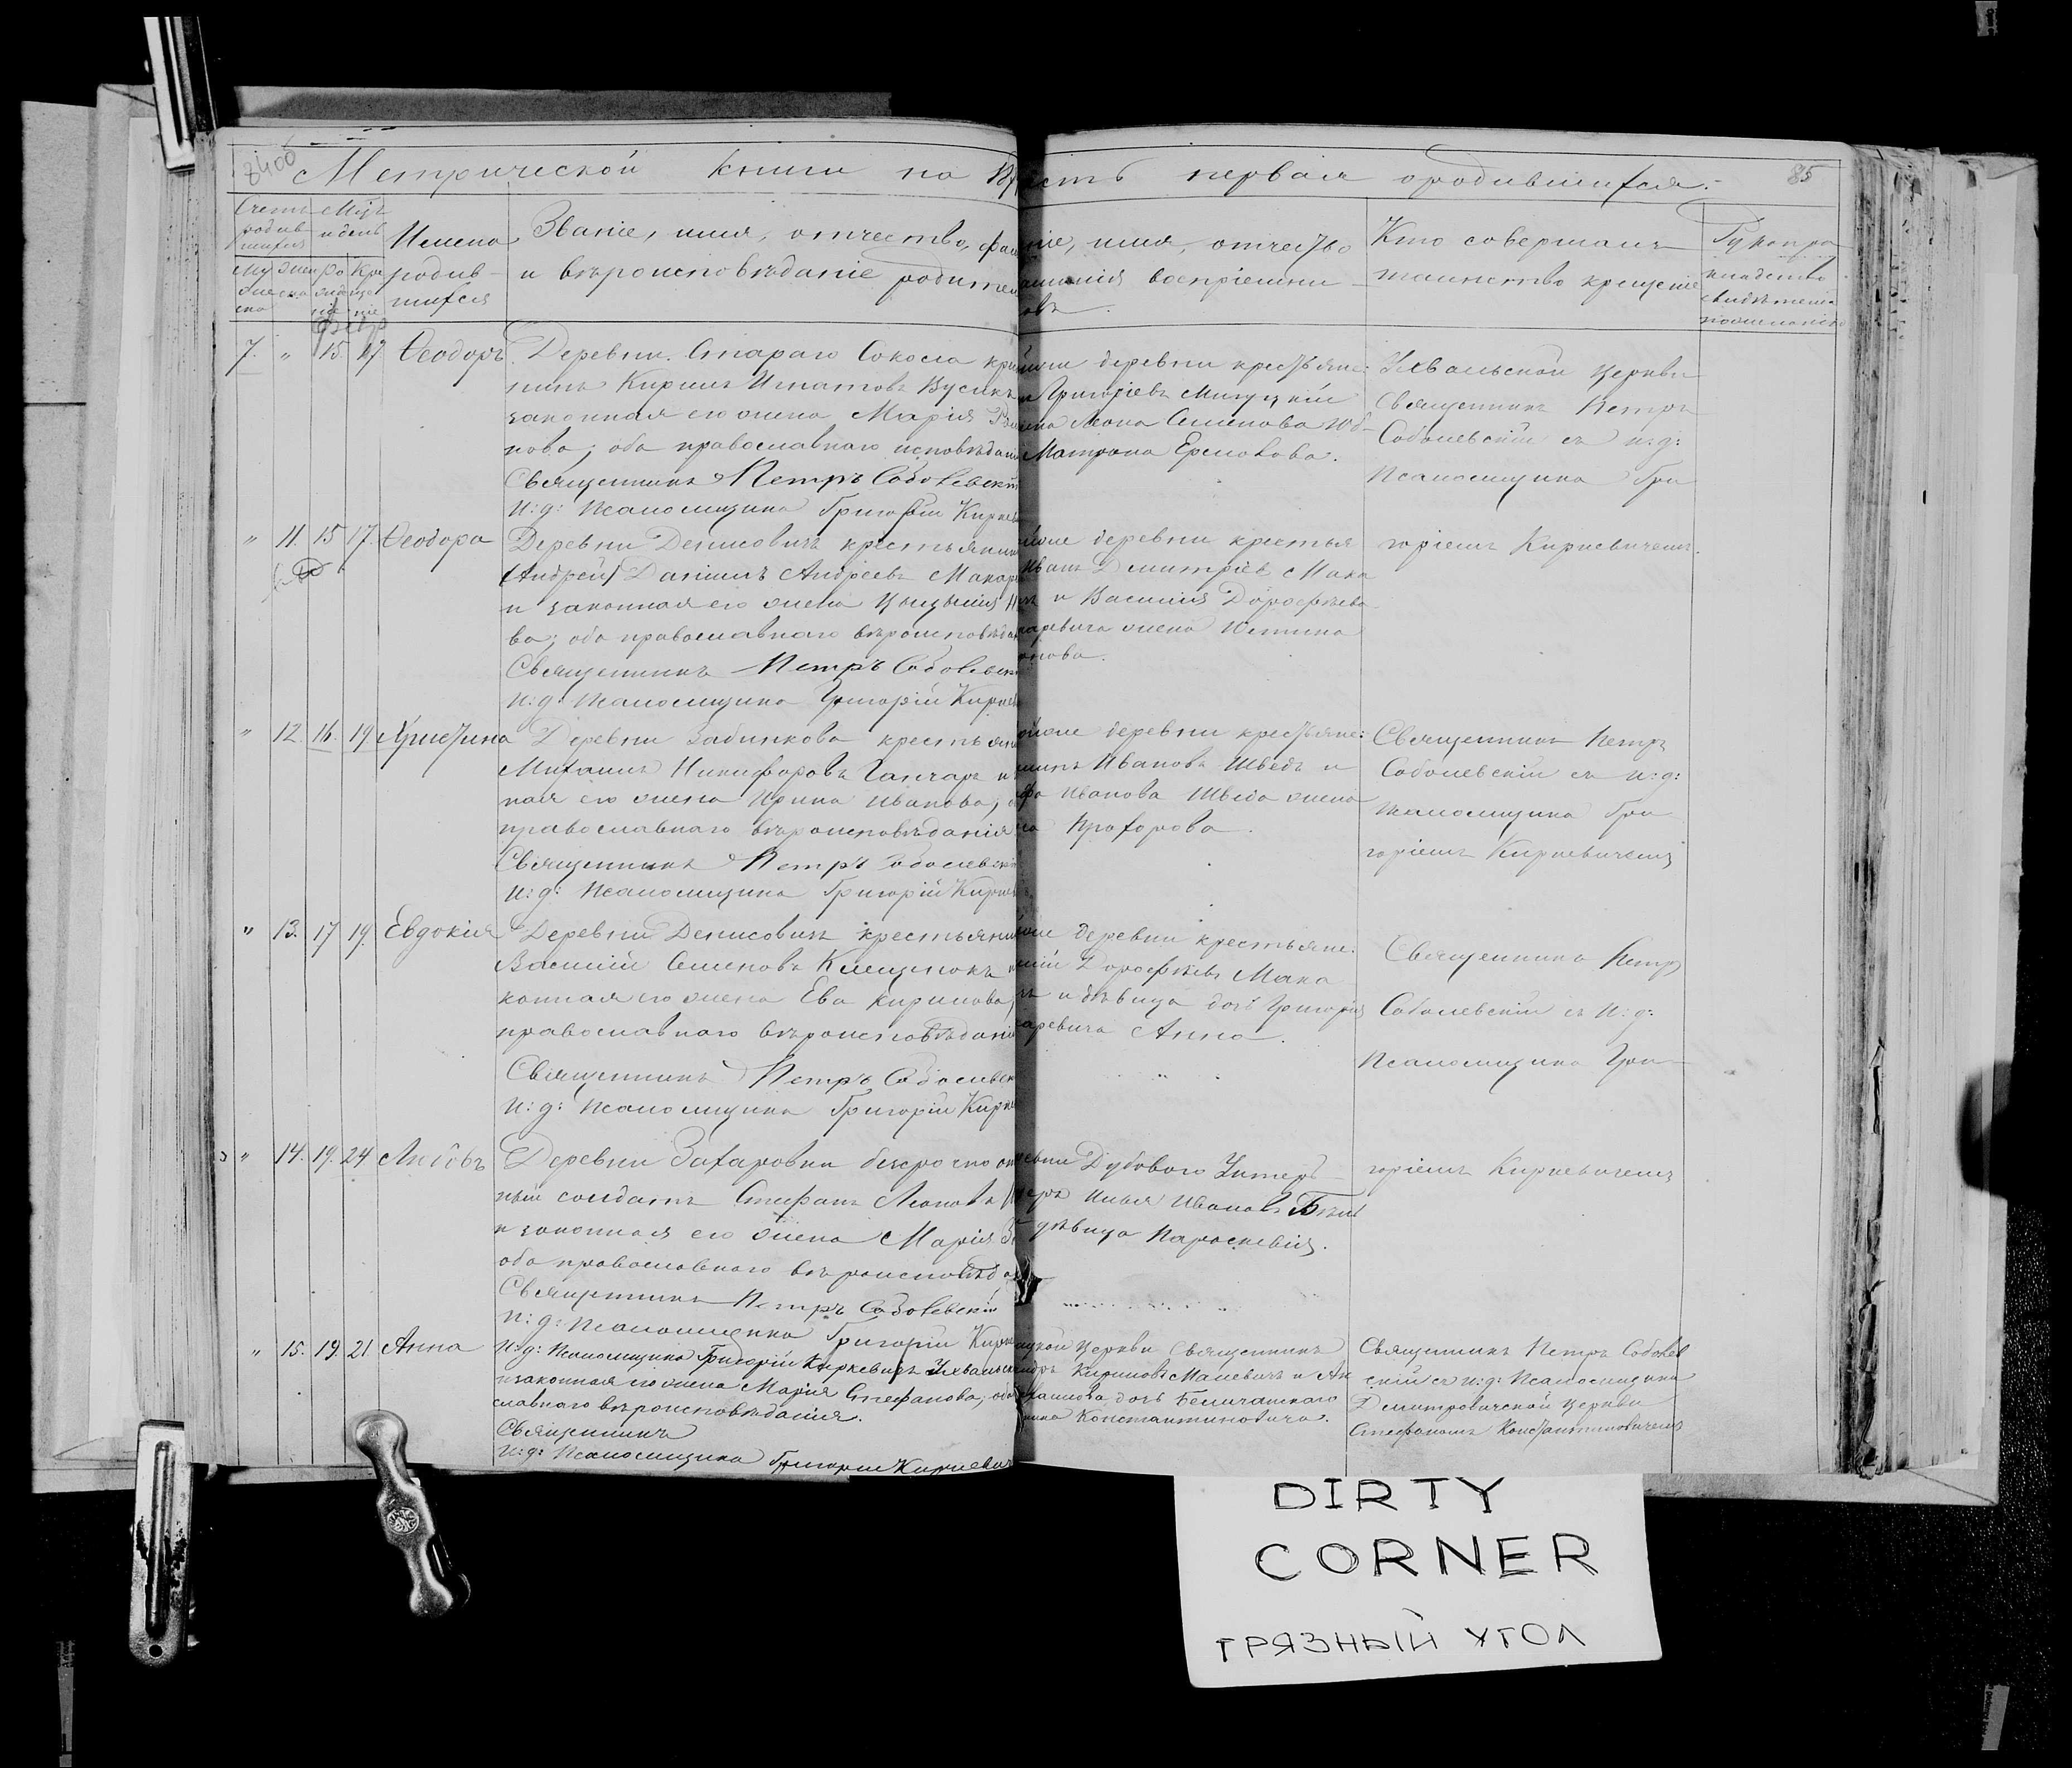 Метрической книги на 18
сть первая ородившихся.
85
Имена
родив
шихся
Званіе, имя, отчество, фам
и вѣроисповѣданіе родител
ніе, имя, отчество
воспріемни
Кто совершалъ
таинство крещенія
Рукопри
кладство
свидѣтел
7. " 15. 17 Ѳеодоръ
Деревни Стараго Сокола кре
нинъ Кирилъ Игнатовъ Бусикъ
законная его жена Марія
нова; оба православнаго исповѣдан
Священникъ Петръ Соболевскі
И: д: Псаломщика Григорій Кирке
деревни крестьяне:
Григоріевъ
Леона Семенова
Матрона Ермолова.
Ухвальской церкви
Священникъ Петръ
Соболевскій съ и: д:
Псаломщика Гри
" 11. 15 17. Ѳеодора
Деревни Денисовичъ крестьянин
(Андрей) Даніилъ Андреевъ Макар
и законная его жена
ва; оба православнаго вѣроисповѣдан
Священникъ Петръ Соболевск
И: д: Псаломщика Григорій Кирке
деревни крестья
Иванъ Димитріевъ Мака
и Василія Дорофѣева
каревича жена Устина
нова.
горіемъ Киркевичемъ.
" 12. 16. 19 Христина
Деревни Забинкова крестьяни
Михаилъ Никифоровъ Ганчаръ и
ная его жена Ирина Иванова; о
православнаго вѣроисповѣданія
Священникъ Петръ Соболевскі
И: д: Псаломщика Григорій Кирке
деревни крестьяне:
Ивановъ Шведъ и
Иванова Шведа жена
Прохорова.
Священникъ Петръ
Соболевскій съ и: д:
Псаломщика Гри
горіемъ Киркевичемъ
" 13. 17 19. Евдокія
Деревни Денисовичъ крестьянин
Василій Семеновъ Клещенокъ
конная его жена Ева Кирилова,
православнаго вѣроисповѣданія
Священникъ Петръ Соболевск
И: д: Псаломщика Григорій Кирке
деревни крестьяне.
Дорофѣевъ Мака
и дѣвица дочь Григорія
каревича Анна.
Священникъ Петръ
Соболевскій съ И: д:
Псаломщика Гри
" 14. 19. 24 Любовь
Деревни Захаровки безсрочно от
ный солдатъ Стефанъ Леоновъ
и законная его жена Марія
оба православнаго вѣроисповѣда
Священникъ Петръ Соболевскій
И: д: Псаломщика Григорій Кирке
Дубоваго Унтеръ
Илья Ивановъ
дѣвица Параскевія.
горіемъ Киркевичемъ
" 15. 19. 21 Анна
И: д: Псаломщика Григорій Киркевичъ Ухвальск
и законная его жена Марія Стефанова; оба
славнаго вѣроисповѣданія.
Священникъ
И: д: Псаломщика Григорій Киркевич
церкви Священникъ
Кириловъ Малевичъ и
дочь
Константиновича.
Священникъ Петръ Соболев
скій съ и: д: Псаломщика
Димитровичской церкви
Стефаномъ Константиновичемъ
DIRTY
CORNER
ГРЯЗНЫЙ УГОЛ